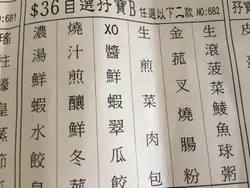 $36自選孖寶B 任選以下二款 NO:681
濃湯鮮蝦水餃
燒汁煎釀冬
XO醬鮮蝦翠瓜餃
生煎菜肉包
金菰叉燒腸粉
生滾菠菜魚球粥